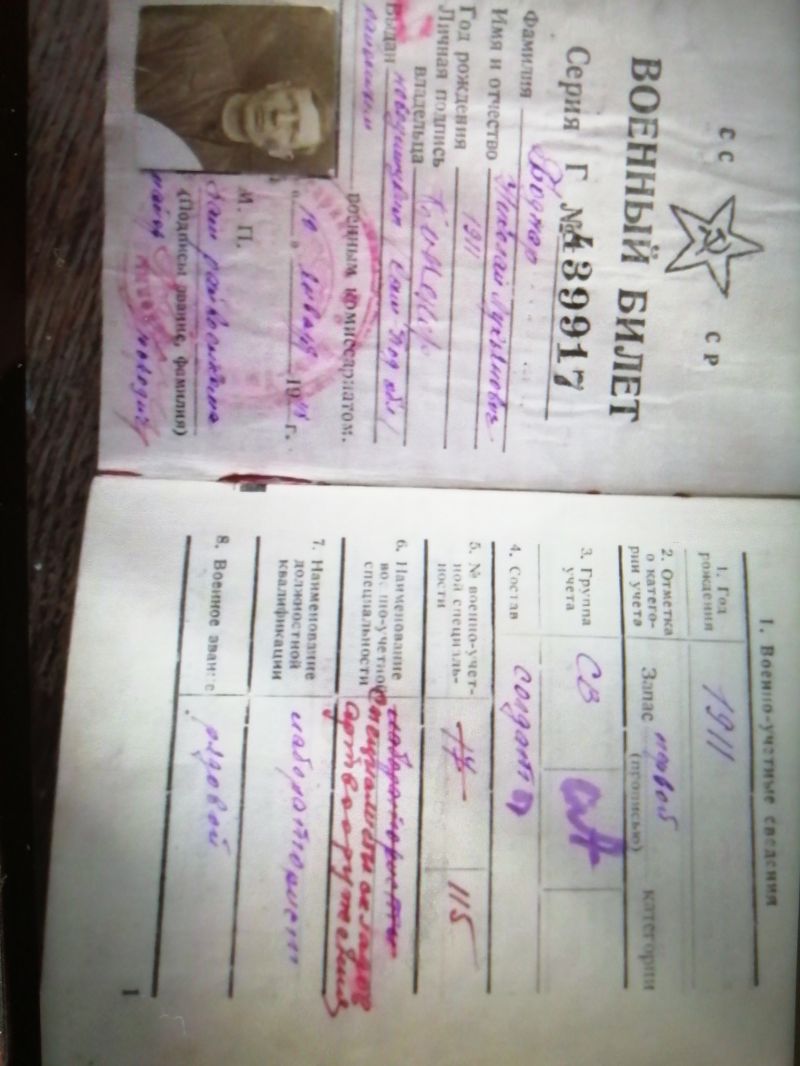 СССР
ВОЕННЫЙ БИЛЕТ
Серия Г № 439917
Фамилия Боднар
Имя и отчество Николай Лукьянович
Год рождения 1911
Личная подпись
владельца Боднар
Выдан
военным комиссариатом.
10 января 1948 г.
М. П.
(Подпись, звание, фамилия)
майор
1. Военно-учетные сведения
1. Год
рождения 1911
2. Отметка
о катего-
рии учета Запас первой категории
(прописью)
3. Группа
учета СВ
4. Состав солдат
5. № военно-учет-
ной специаль-
ности 17 115
6. Наименование
военно-учетной
специальности
Специалисты складов
артвооружения
7. Наименование
должностной
квалификации
8. Военное звание рядовой
1